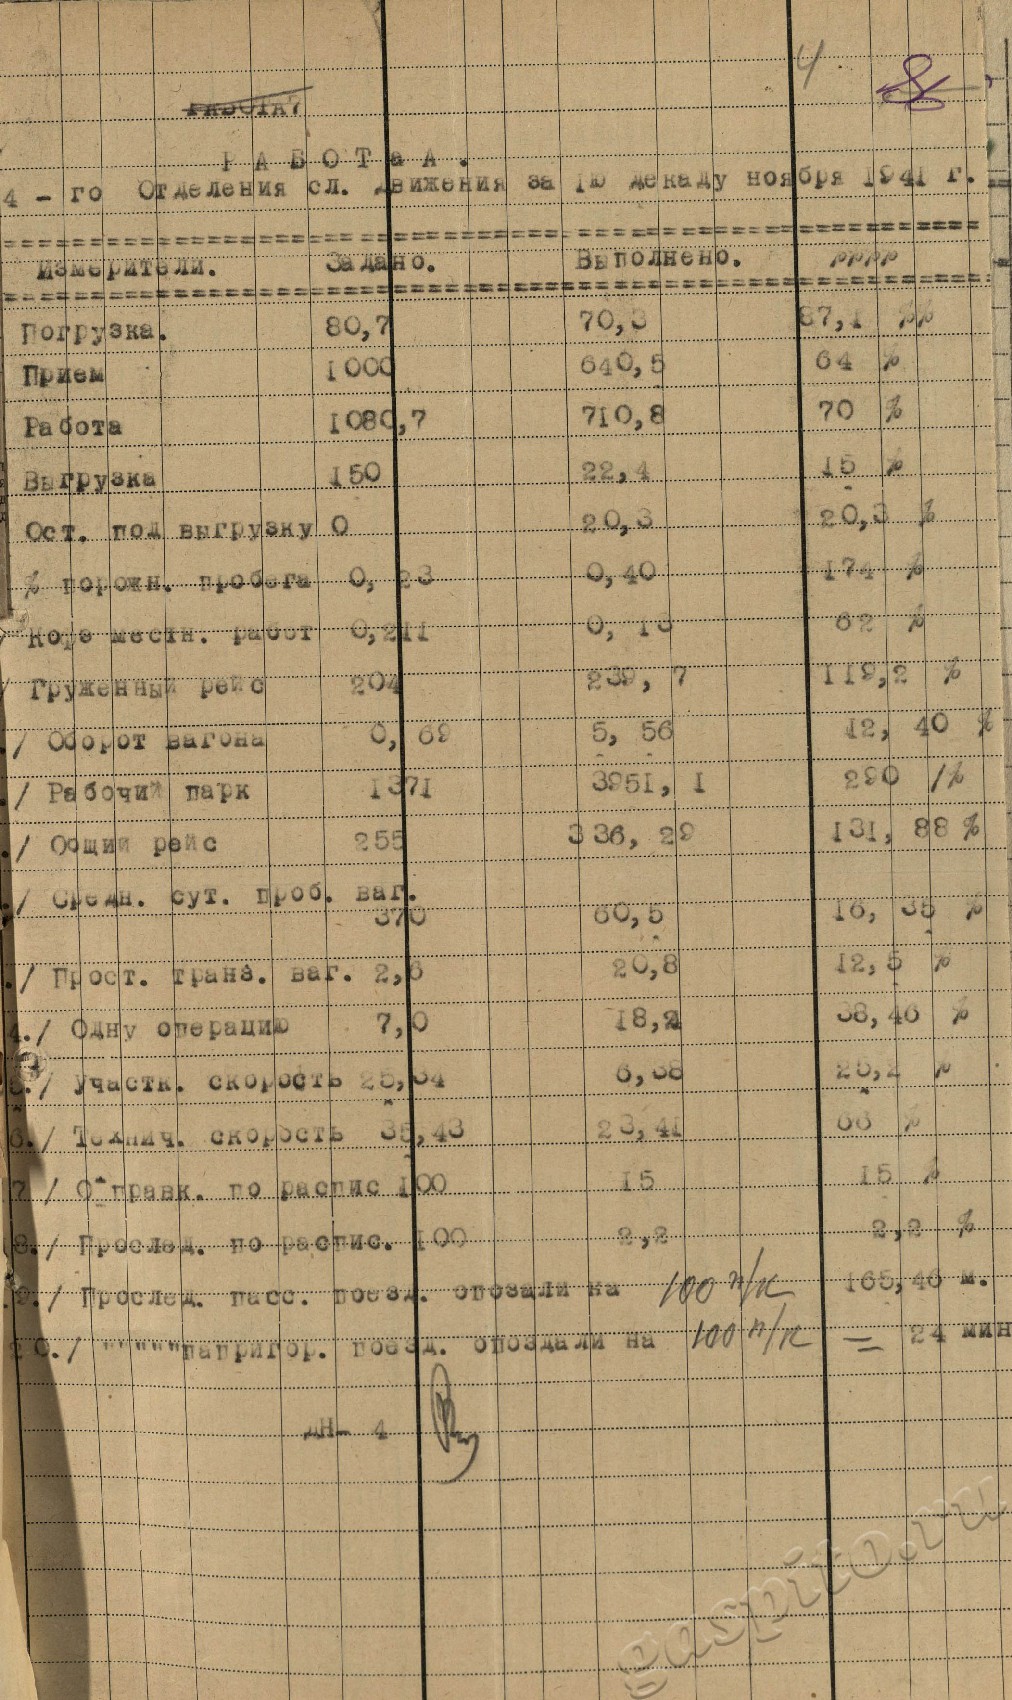 4
РАБОТА?
РАБОТаА.
4 - го Отделения сл. движения за 1ю декаду ноября 1941 г.
Измерители. Задано. Выполнено. %%%%
Погрузка. 80,7 70,3 87,1 %%
Прием 1000 640,5 64 %
Работа 1080,7 710,8 70 %
Выгрузка 150 22,4 15 %
Ост. под выгрузку 0 20,3 20,3 %
% порожн. пробега 0, 23 0,40 174 %
местн. работ 0,211 0, 13 62 %
/ Груженный рейс 204 239, 7 119,2 %
./ Оборот вагона 0, 69 5, 56 12, 40 %
./ Рабочий парк 1371 3951, 1 290 /%
./ Общий рейс 255 336, 29 131, 88 %
./ Средн. сут. проб. ваг.
370 60,5 16, 35 %
./ Прост. транз. ваг. 2,6 20,8 12,5 %
4./ Одну операцию 7,0 18,2 38,46 %
5./ Участк. скорость 25,34 6,38 25,2 %
6./ Технич. скорость 35,43 23,41 66 %
7/ Отправк. по распис 100 15 15 %
8./ Прослед. по распис. 100 2,2 2,2 %
9./ Прослед. пасс. поезд. опозали на 100 п/к 165,46 м.
20./ """"""папригор. поезд. опоздали на 100 п/к = 24 мин
ДН- 4
gaspito.ru